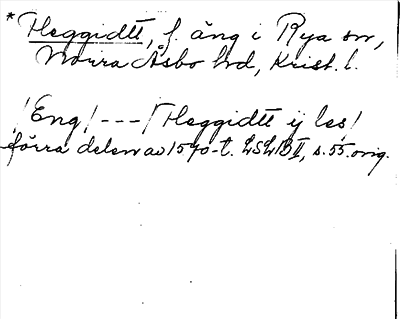 * Heggidtt, f. äng i Rya sn,
Norra Åsbo hd, Krist. l.
/Eng/ --- / Heggidtt ij les/
förra delen av 1570-t. LSLB II, s. 55. orig.